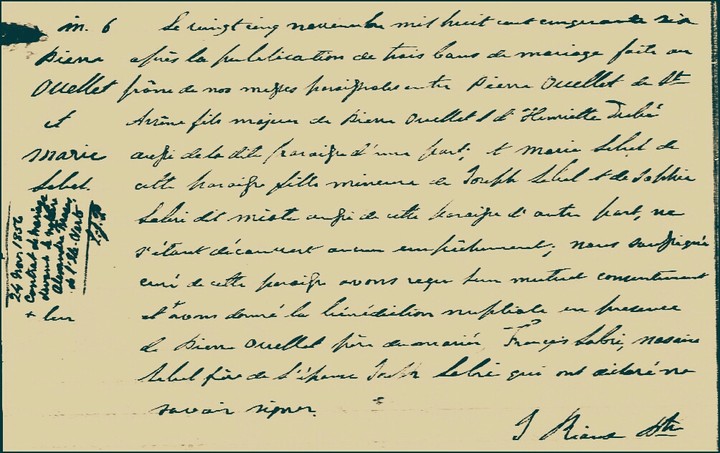 m. 6
Pierre
Ouellet
et
Marie
Lebel.
24 Nov. 1856
Contrat de mariage
devant le notaire
Alexandre
de l'Isle Verte
+ leur
Le vingt cinq novembre mil huit cent cinquante six
après la publication de trois bans de mariage faite au
prône de nos messes paroissiales entre Pierre Ouellet de Ste
fils majeur de Pierre Ouellet & d'Henriette Dubé
aussi de la dite paroisse d'une part; et Marie Lebel de
cette paroisse fille mineure de Joseph Lebel et de Sophie
dit aussi de cette paroisse d'autre part, ne
s'étant découvert aucun empêchement; nous soussigné
curé de cette paroisse avons reçu + mutuel consentement
et avons donné la bénédiction nuptiale en présence
de Pierre Ouellet père du marié, François
Lebel frère de l'épouse Joseph qui ont déclaré ne
savoir signer.
J Ptre